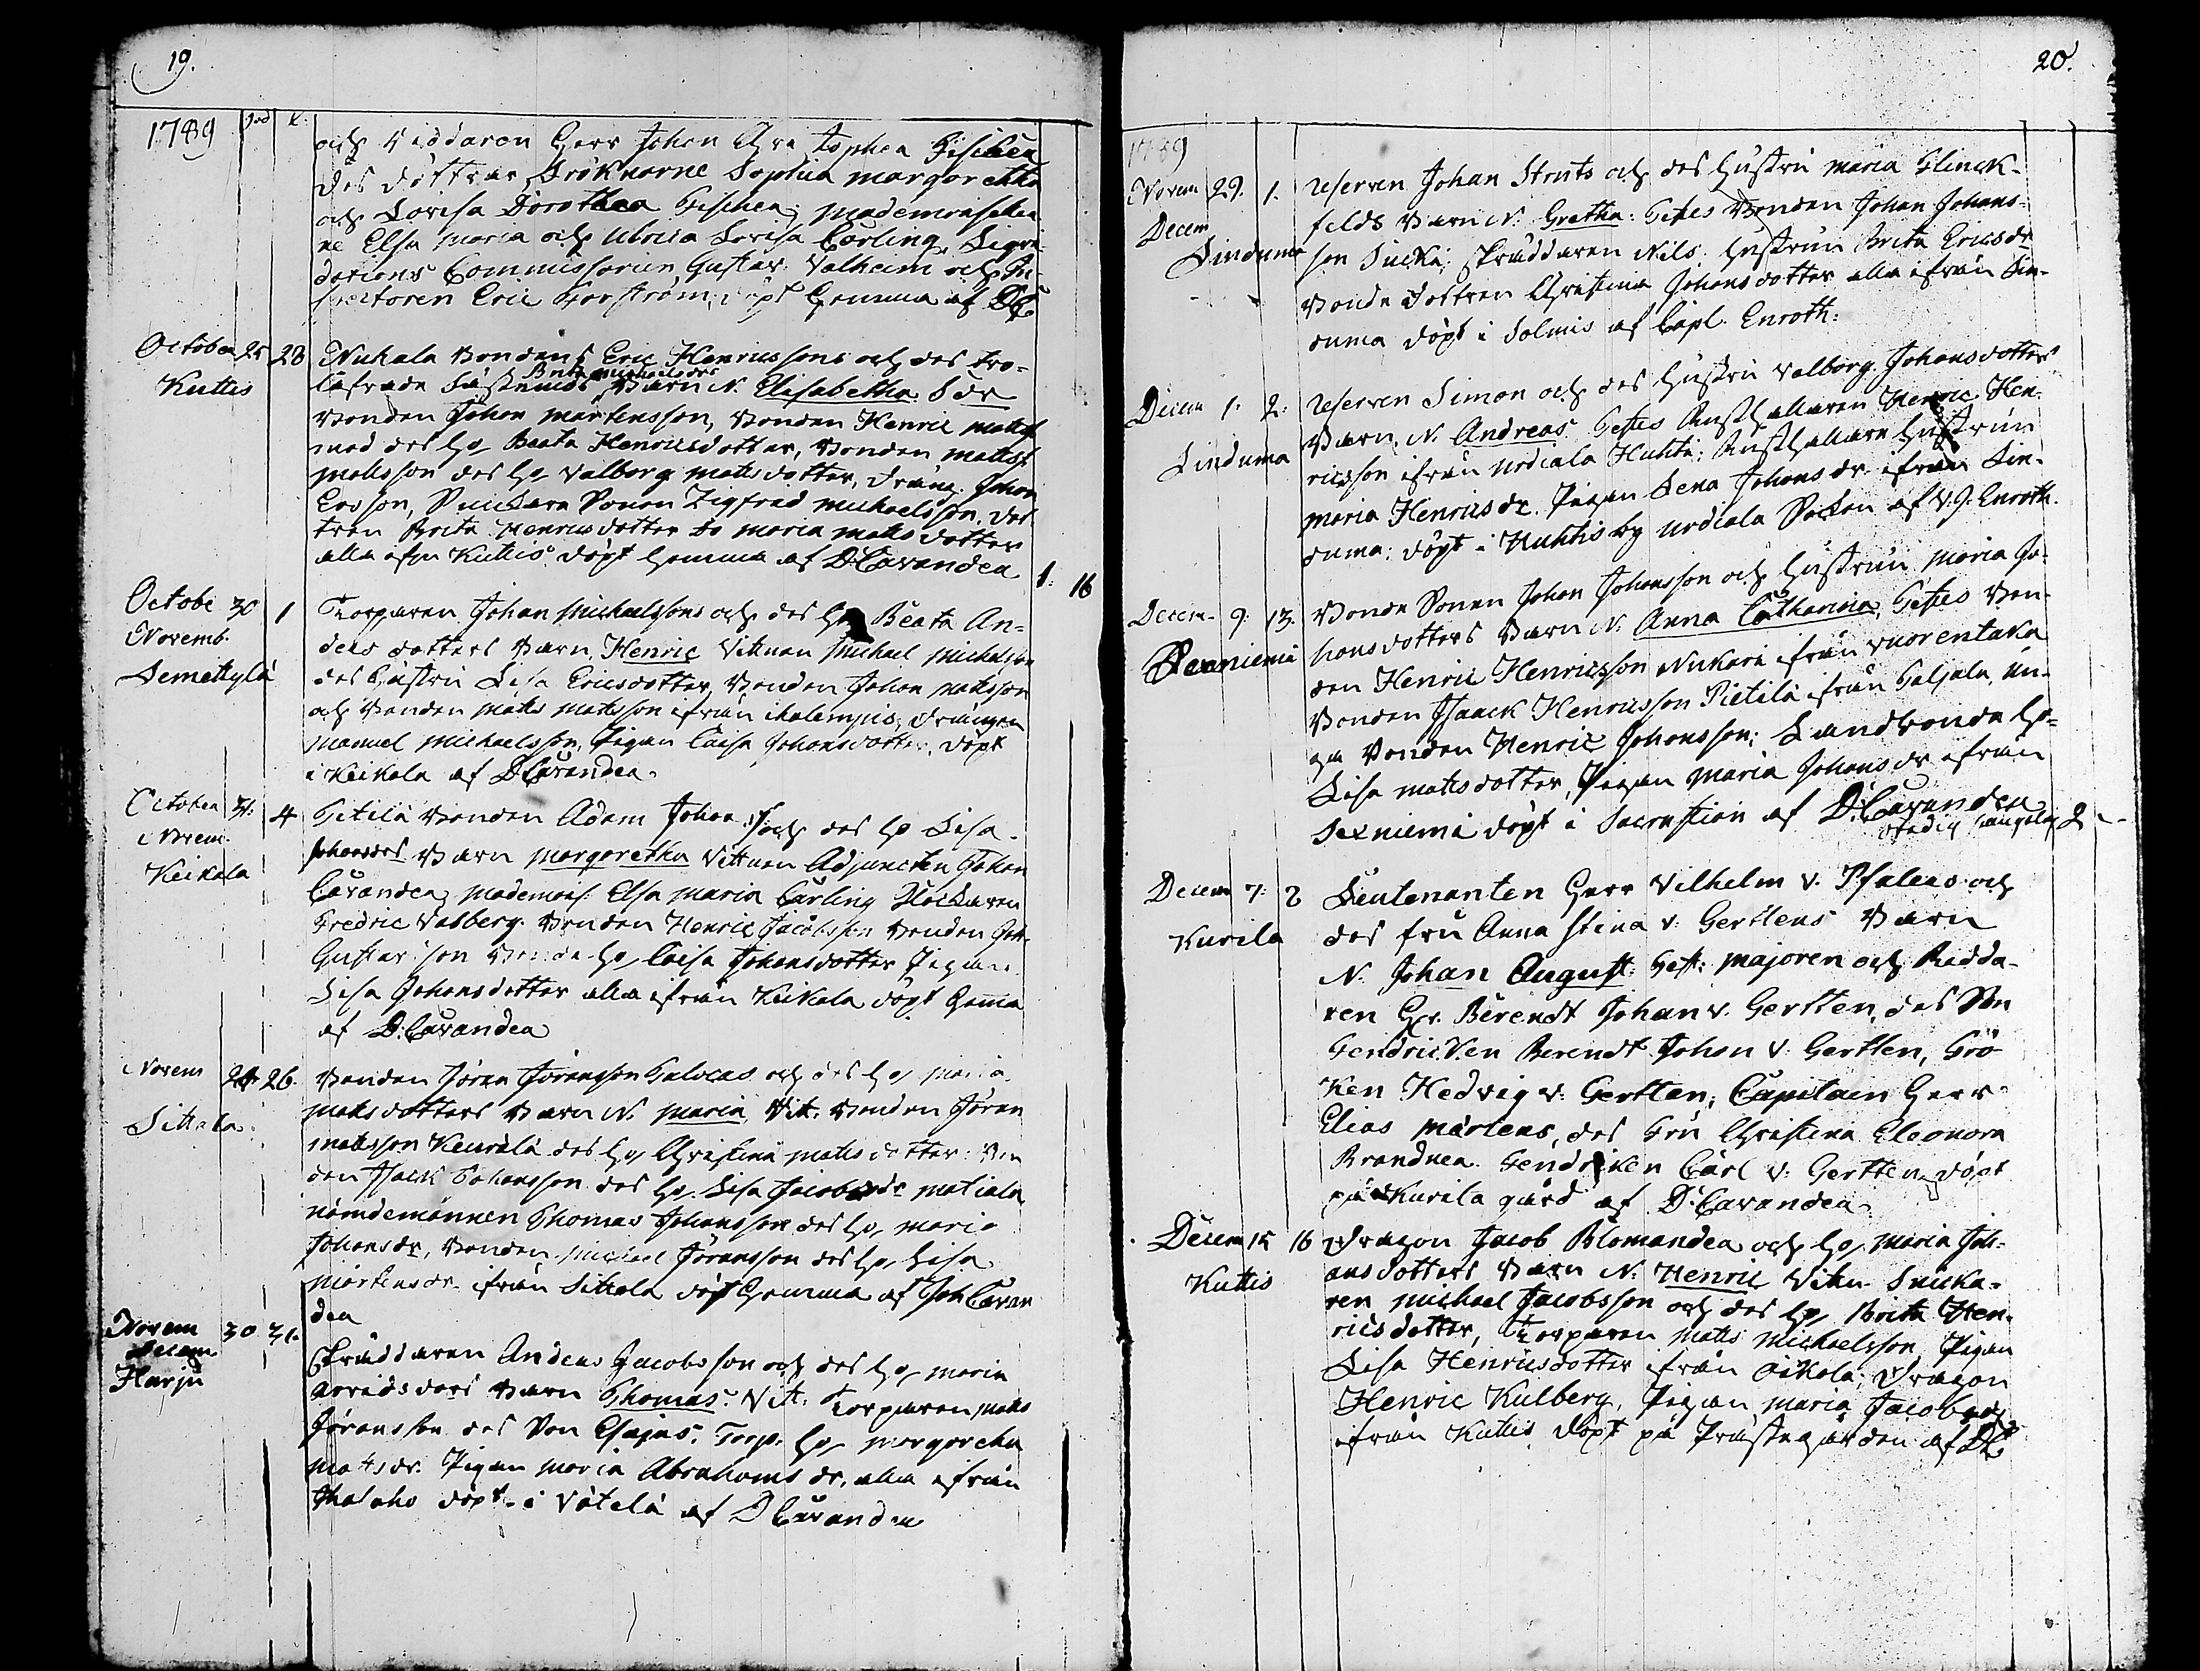 19.
1789 Föd X:
och Riddaren Herr Johan Christopher Fischer
Des döttrar, Fröknarne Sophia Margaretha
och Lovisa Dorothea Fischer, Mademoiselle
ne Elsa Maria och Ulrica Lovisa Carling,
Commissarien Gustav Valheim och In-
spectoren Eric Forström, döpt hemma af DC
October 25 28 Nukala bondens Eric Henricssons och des tro-
Brita Michaelsdrs
låfvade Barn N. Elisabetha
Kuttis
Bonden Johan Mårtensson, Bonden Henric Mattss
med des H. Beata Henricsdotter, Bonden Matts
Matsson des H. Valborg Matsdotter, dräng Johan
Ersson, Sonen Zigfred Michaelsson, Dot
tren Brita Henricsdotter Maria Matsdotter
alla ifrn Kuttis döpt hemma af D Cavander
1: 16
Octobr 30 1 Torparen Johan Michaelssons och des H. Beata An-
Novemb. ders dotters Barn Henric Vitnen Michael Michelsson
Semettylä des Hustru Lisa Ersdotter, Bonden Johan Matsson
och Bonden Mats Matsson ifrån ikalempis, drängen
Manuel Michaelsson, Pigan Caisa Johansdotter, döpt
i Keikala af D Cavander.
October 31. 4 Petilä Bonden Adam Johanss och des H Lisa
Novem. Johansdrs Barn Margaretha Vitnen Adjuncten Johan
Keikala
Cavander, Mademois: Elsa Maria Carling Klockaren
Fredric Valberg. Bonden Henric Jacobsson Bonden Joh.
Gustafsson Bonde H. Caisa Johansdotter Pigan
Lisa Johansdotter alla ifrån Keikala döpt hemma
af D: Cavander
Novem 24 26. Bonden Jöran Jöransson och des H. Maria
Sittala Matsdotters Barn N. Maria Vit. Bonden Jöran
Matsson Keurälä des H. Christina Matsdotter: Bon
den Isack Johansson des H. Lisa Jacobsdr
nämdemannen Thomas Johansson des H. Maria
Johansdr, Bonden Michael Jöransson des H. Lisa
Mårtensdr ifrån Sittala döpt hemma af Joh Cavan
der
Novem 30 31.
Decem
Harju
Skräddaren Anders Jacobsson och des H. Maria
Arvidsdors Barn Thomas. Vit. Torparen Mats
Jöransson des Son Esajas, Torp. H. Margaretha
Matsdr. Pigan Maria Abrahams dr, alla ifrån
döpt i Vätelä af D Cavander
20.
1789
Novem 29. 1. Reserven Johan Struts och des Hustru Maria Flinck-
Decem felds Barn N. Gretha: Testes Bonden Johan Johans-
Sinduma son Sucki; Skräddaren Nils. Hustrun Brita Ericsdr
Bonde dottren Christina Johansdotter alla ifrån Sin-
duma döpt i Solmis af Capl. Enroth:
Decem 1. 2: Reserven Simon och des Hustru Valborg Johansdotters
Barn, N. Andreas Testes Rusthållaren Henric Hen-
Sinduma ricsson ifrån Urdiala Huhti; Rusthållare Hustrun
Maria Henricsdr. Pigan Lena Johansdr ifrån Sin-
duma: döpt i Huhtis by Urdiala Socken af V.P. Enroth.
Decem. 9. 13. Bonde Sonen Johan Johansson och Hustrun Maria Jo-
hansdotters Barn N. Anna Catharina, Testes Bon-
Sexniemi den Henric Henricsson Nukari ifrån Vuorentaka
Bonden Isaack Henricsson Pietilä ifrån Taljala, un-
ga Bonden Henric Johansson; Landbonde H.
Lisa Matsdotter, Pigan Maria Johansdr ifrån
Sexniemi döpt i Sacrestian af D: Cavander
2
Decem 7: 8 Lieutenanten Herr Vilhelm v. Pfaler och
Kurila des fru Anna Stina v: Gertten Barn
N. Johan August: Test: Majoren och Ridda-
ren Hr. Berendt Johan v. Gertten, des Son
Fendricken Berendt Johan v: Gertten, Frö
ken Hedvig v. Gertten, Capitain Herr
Elias Mårtens, des Fru Christina Eleonora
Brandner Fendriken Carl v: Gertten, döpt
på Kurila gård af D: Cavander.
Decem 15 16 Dragon Jacob Blomander och H. Maria Joh-
Kuttis ansdotters Barn N: Henric Vitn. Snicka-
ren Michael Jacobsson och des H. Brita Hen-
ricsdotter, Torparen Mats Michaelsson, Pigan
Lisa Henricsdotter ifrån Oikola; Dragon
Henric Kulberg, Pigan Maria Jacobsdr
ifrån Kuttis döpt på Prästegården af DC